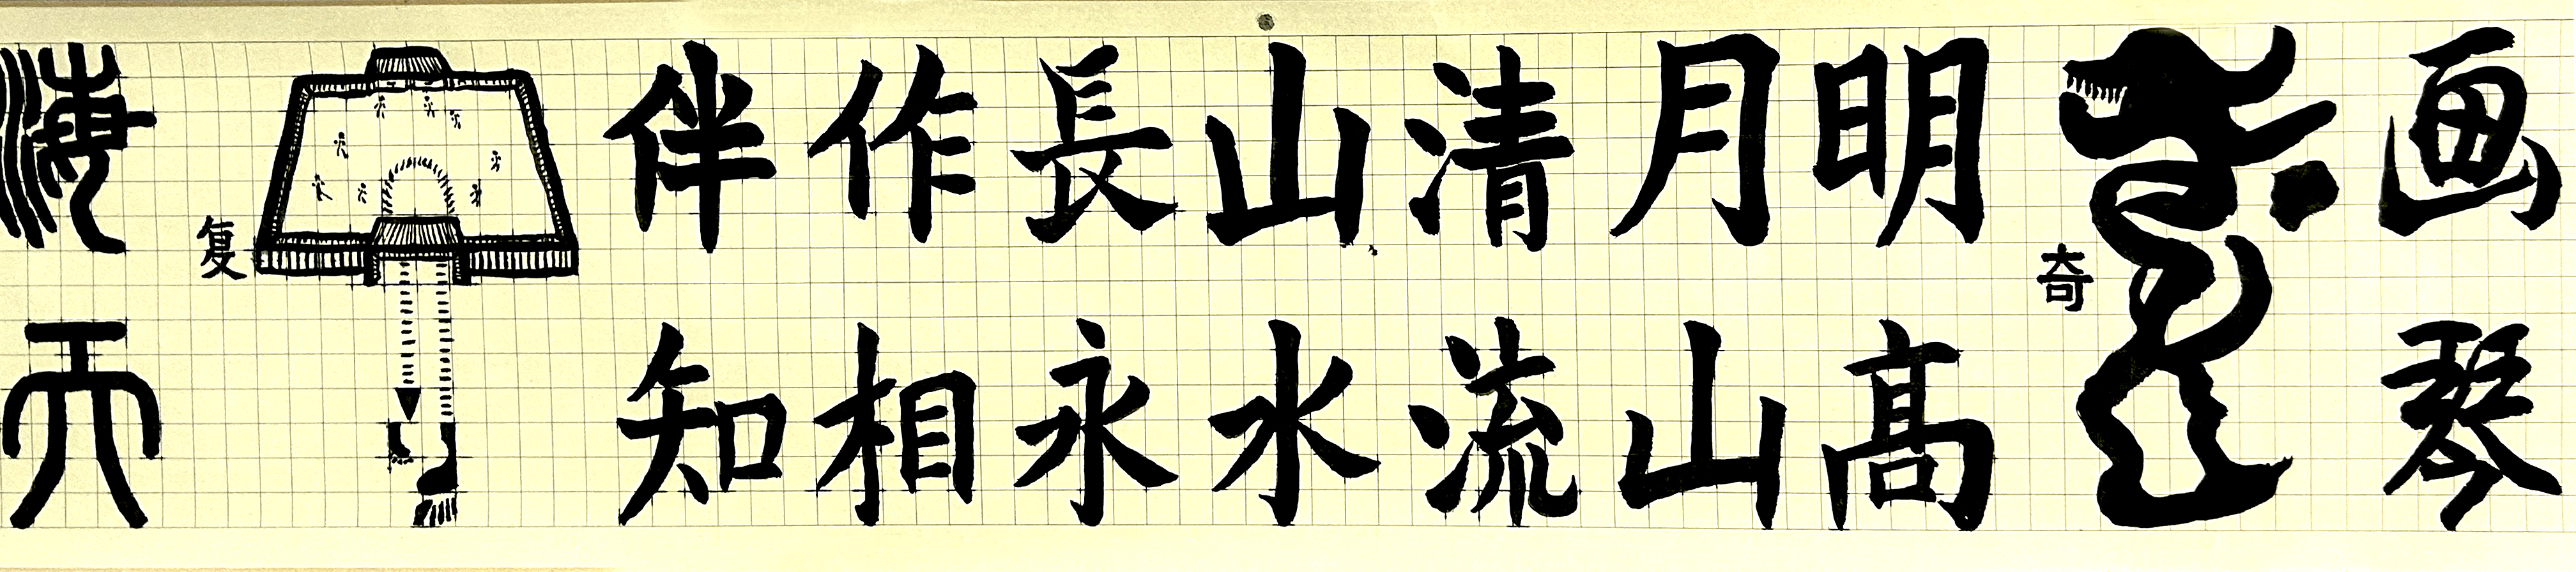 画琴
奇
明月清山長作伴
高山流水永相知
复
海天